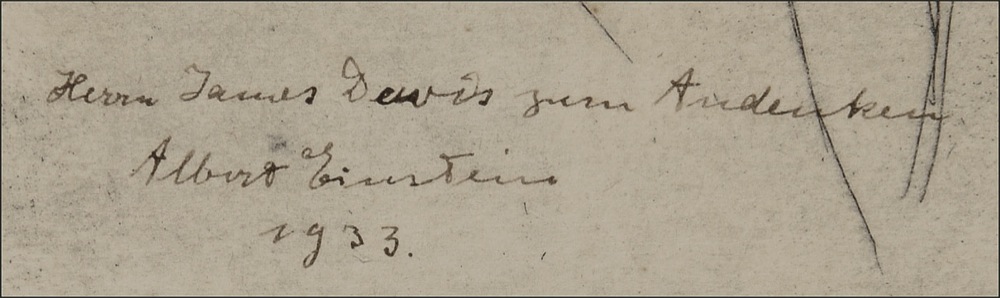 Herrn James Davids zum Andenken
Albert Einstein
1933.